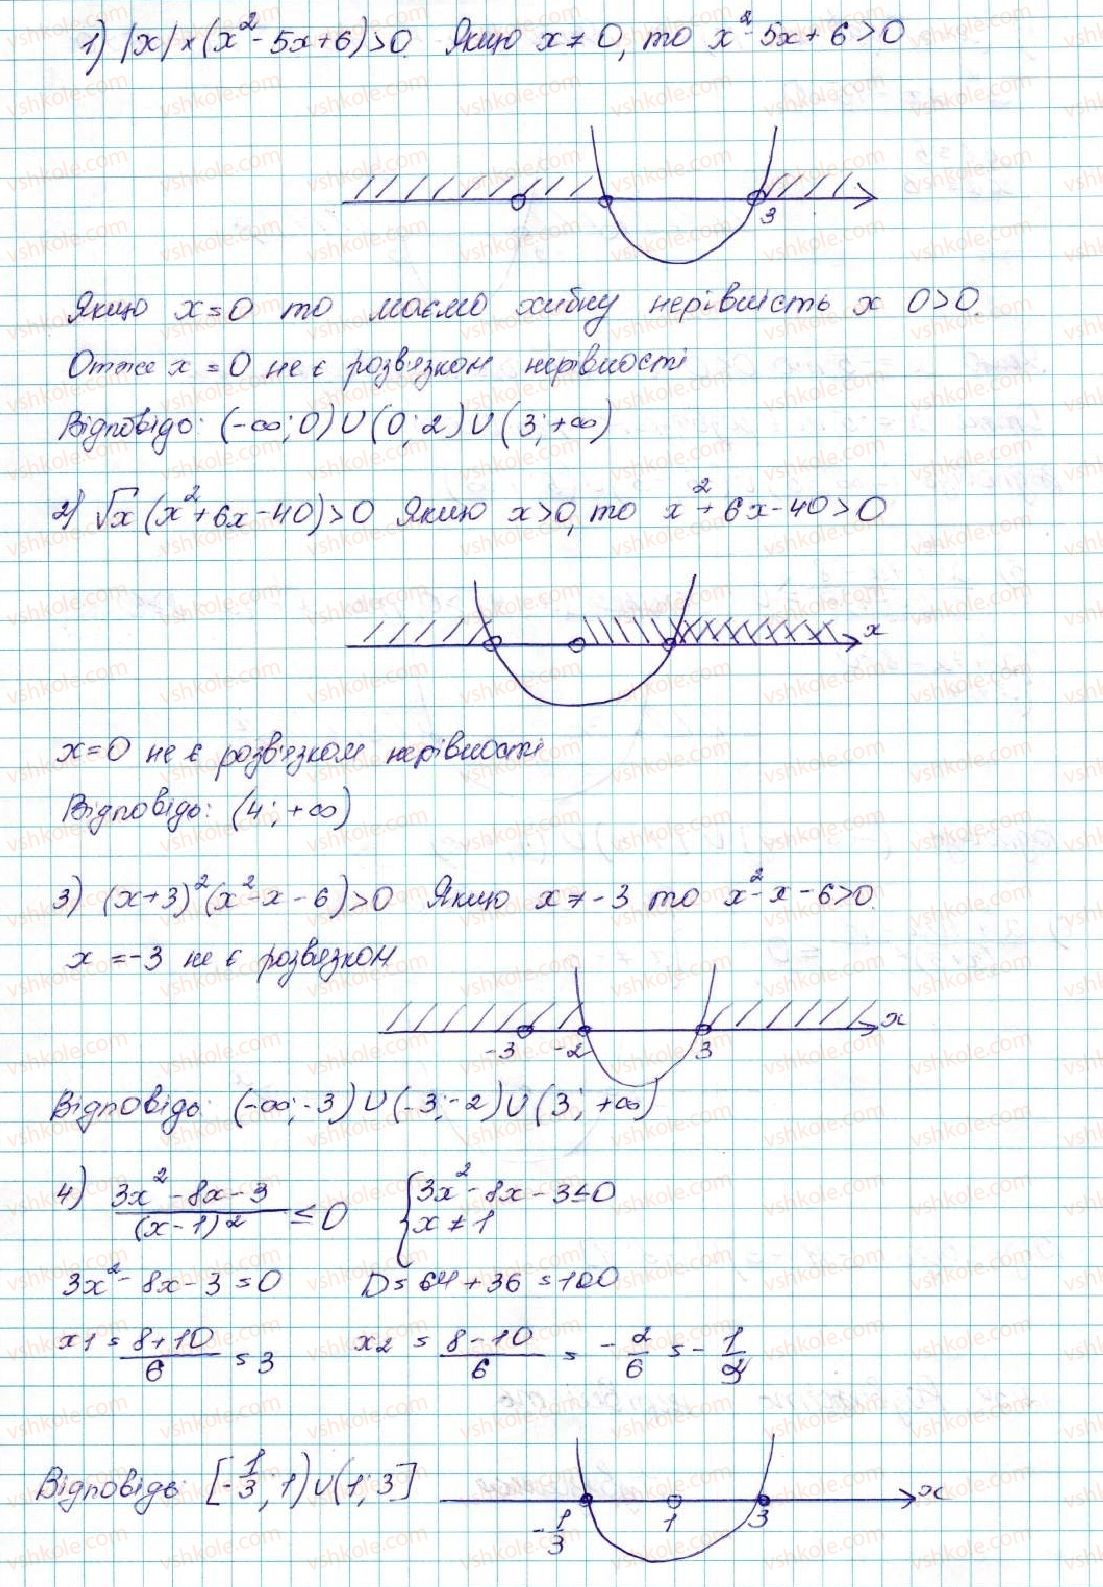 1) |x| × (x² - 5x + 6) > 0. Якщо x ≠ 0, то x² - 5x + 6 > 0
3
Якщо x = 0 то маємо хибну нерівність x 0 > 0.
Отже x = 0 не є розв'язком нерівності
Відповідь: (-∞; 0) ∪ (0; 2) ∪ (3; +∞)
2) √x (x² + 6x - 40) > 0 Якщо x > 0, то x² + 6x - 40 > 0
x
x = 0 не є розв'язком нерівності
Відповідь: (4; +∞)
3) (x + 3)² (x² - x - 6) > 0 Якщо x ≠ -3 то x² - x - 6 > 0.
x = -3 не є розвязком
x
-3 -2 3
Відповідь: (-∞; -3) ∪ (-3; -2) ∪ (3; +∞)
4) (3x² - 8x - 3)/(x - 1)² ≤ 0 { 3x² - 8x - 3 ≤ 0
x ≠ 1
3x² - 8x - 3 = 0 D = 64 + 36 = 100
x1 = (8 + 10)/6 = 3 x2 = (8 - 10)/6 = -2/6 = -1/3
Відповідь [-1/3; 1) ∪ (1; 3]
x
-1/3 1 3